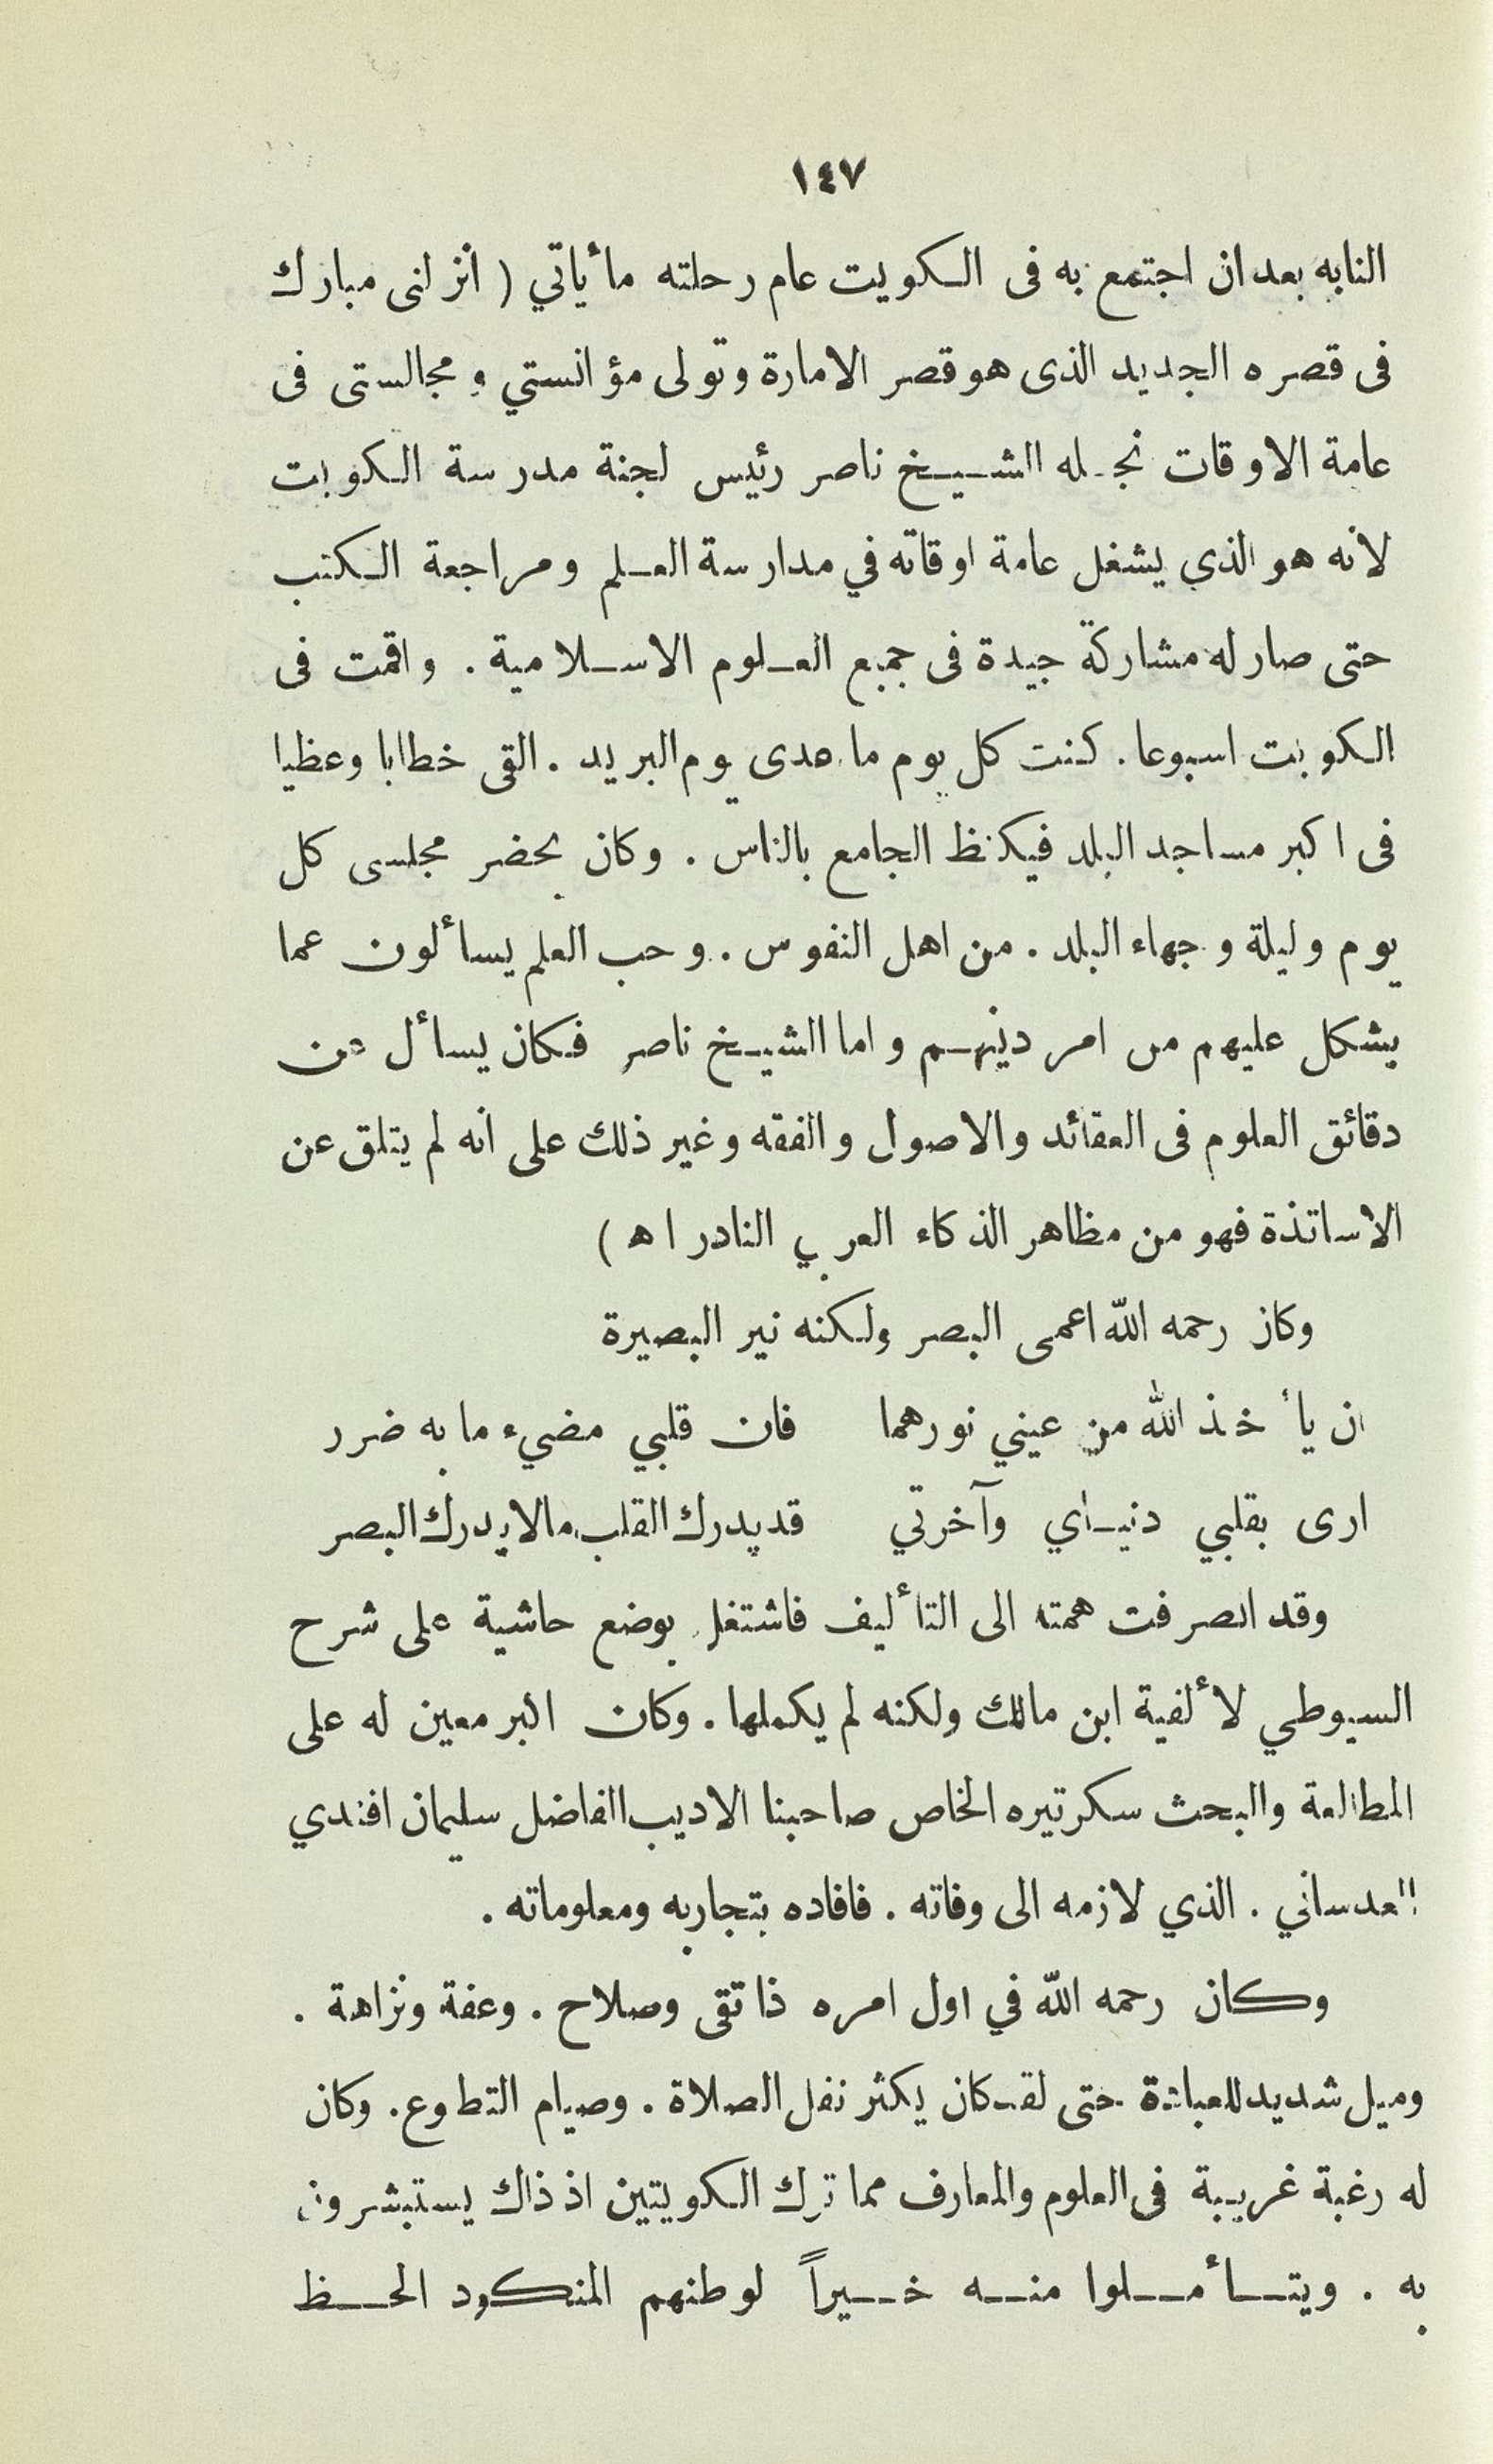 ١٤٧
النابه بعد ان اجتمع به فى الكويت عام رحلته مأياتي ( انزلنى مبارك
فى قصره الجديد الذى هو قصر الامارة وتولى مؤانستي ومجالستى فى
عامة الاوقات نجله الشيخ ناصر رئيس لجنة مدرسة الكويت
لانه هو الذي يشغل عامة اوقاته في مدارسة العلم ومراجعة الكتب
حتى صار له مشاركة جيدة فى جميع العلوم الاسلامية . واقمت فى
الكويت اسبوعا . كنت كل يوم ما عدى يوم البريد . القى خطابا وعظيا
فى اكبر مساجد البلد فيكنظ الجامع بالناس . وكان يحضر مجلسى كل
يوم وليلة وجهاء البلد . من اهل النفوس . وحب العلم يسألون عما
يشكل عليهم من امر دينهم واما الشيخ ناصر فكان يسأل عن
دقائق العلوم فى العقائد والاصول والفقه وغير ذلك على انه لم يتلق عن
الاساتذة فهو من مظاهر الذكاء العربي النادر اه )
وكان رحمه الله اعمى البصر ولكنه نير البصيرة
ان يأخذ الله من عيني نورهما فان قلبي مضيء ما به ضرر
ارى بقلبي دنياي وآخرتي قد يدرك القلب مالا يدرك البصر
وقد انصرفت همته الى التأليف فاشتغل بوضع حاشية على شرح
السيوطي لألفية ابن مالك ولكنه لم يكملها . وكان اكبر معين له على
المطالعة والبحث سكرتيره الخاص صاحبنا الاديب الفاضل سليمان افندي
العدساني . الذي لازمه الى وفاته . فافاده بتجاربه ومعلوماته .
وكان رحمه الله في اول امره ذا تقى وصلاح . وعفة ونزاهة .
وميل شديد للعبادة حتى لقد كان يكثر نفل الصلاة . وصيام التطوع . وكان
له رغبة غريبة فى العلوم والمعارف مما ترك الكويتين اذ ذاك يستبشرون
به . ويتأملوا منه خيراً لوطنهم المنكود الحظ